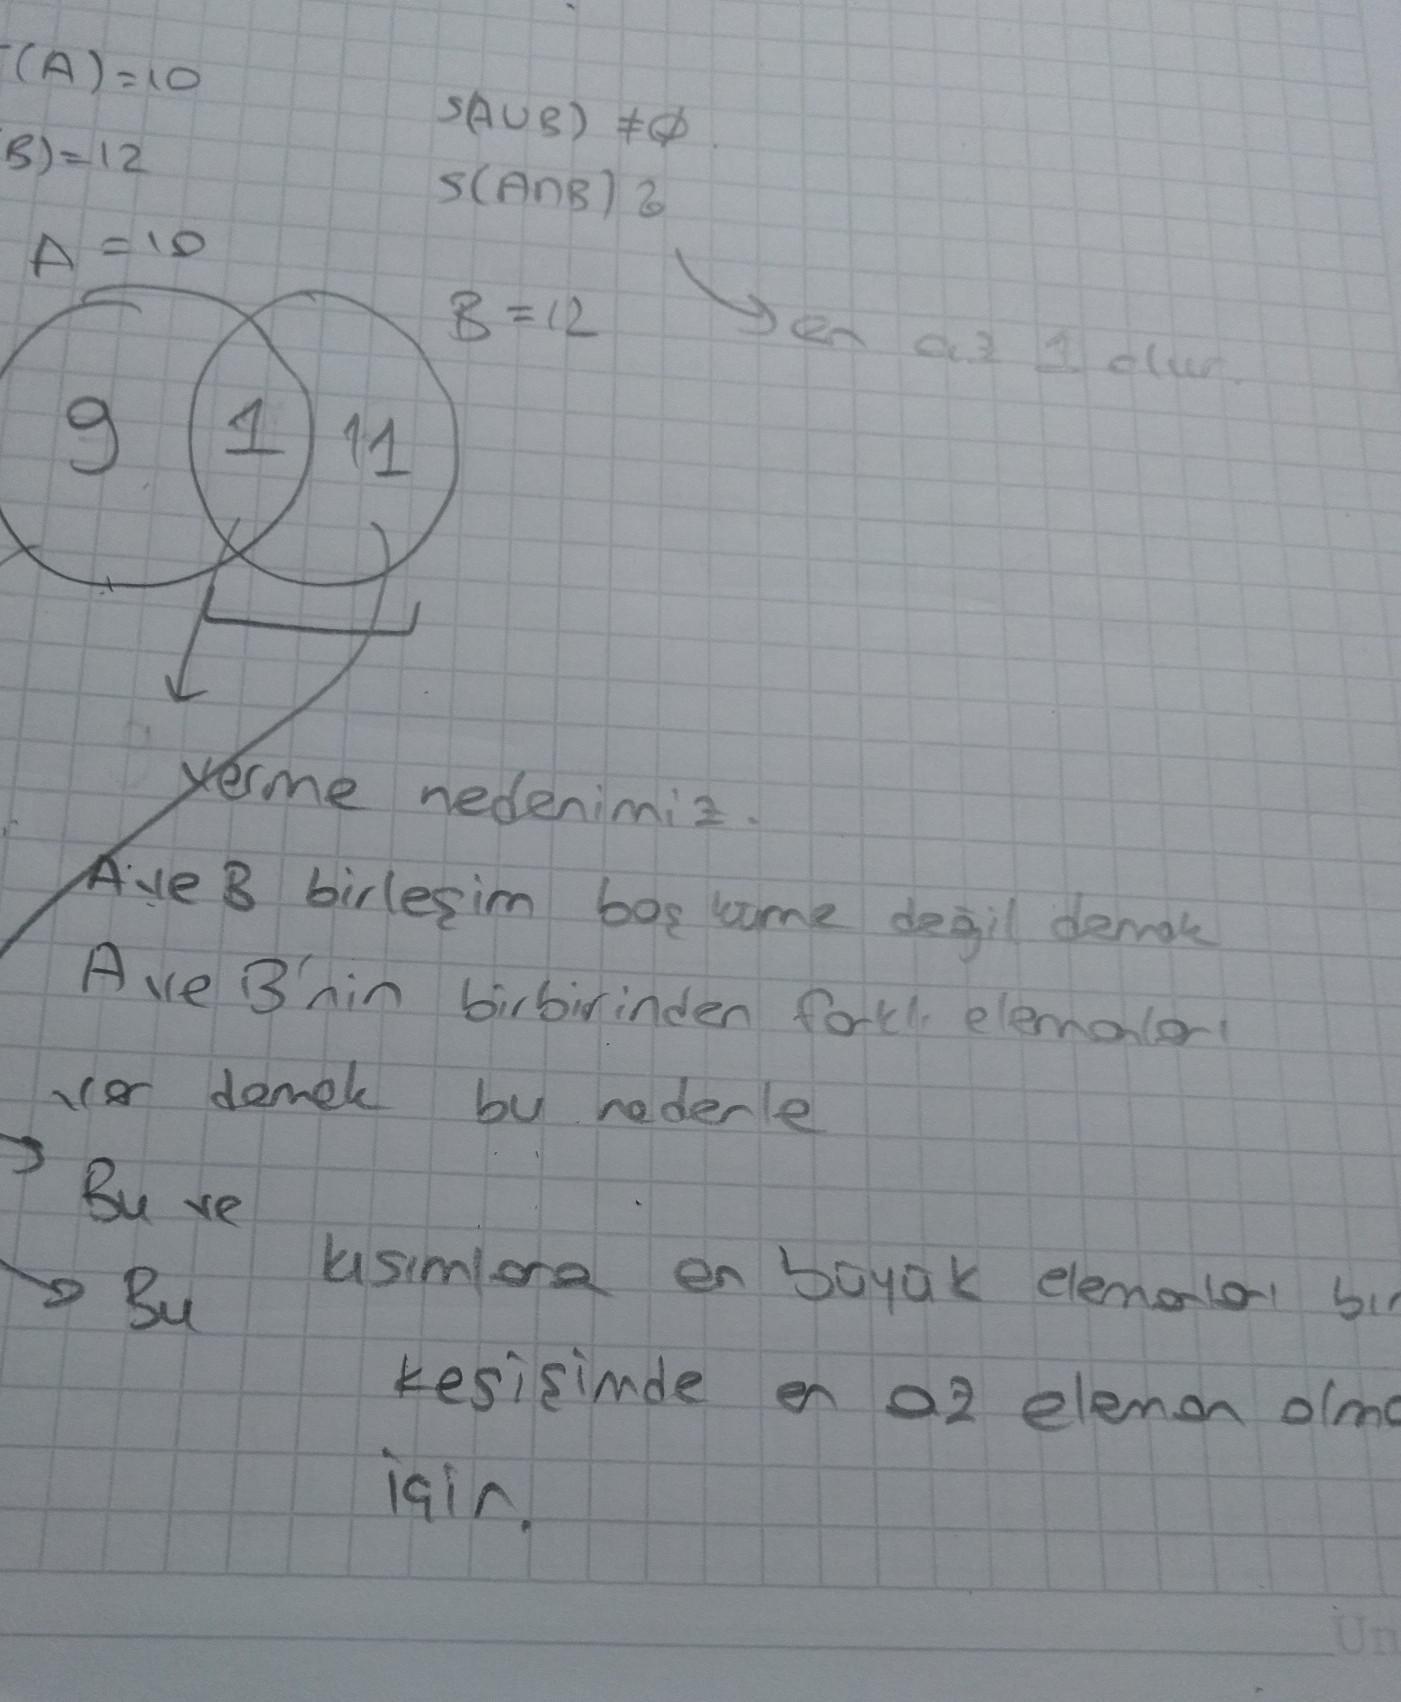 (A)=10
S(AUB) ≠ ∅
B)=12
S(A∩B)?
A = 10
B = 12
en az 1 olur.
9 1 11
verme nedenimiz.
A ve B birleşim boş küme değil demek
A ve B'nin birbirinden farklı elemanları
var demek bu nedenle
Bu ve
Bu kısımlara en büyük elemanları
kesişimde en az eleman
için.
Ün